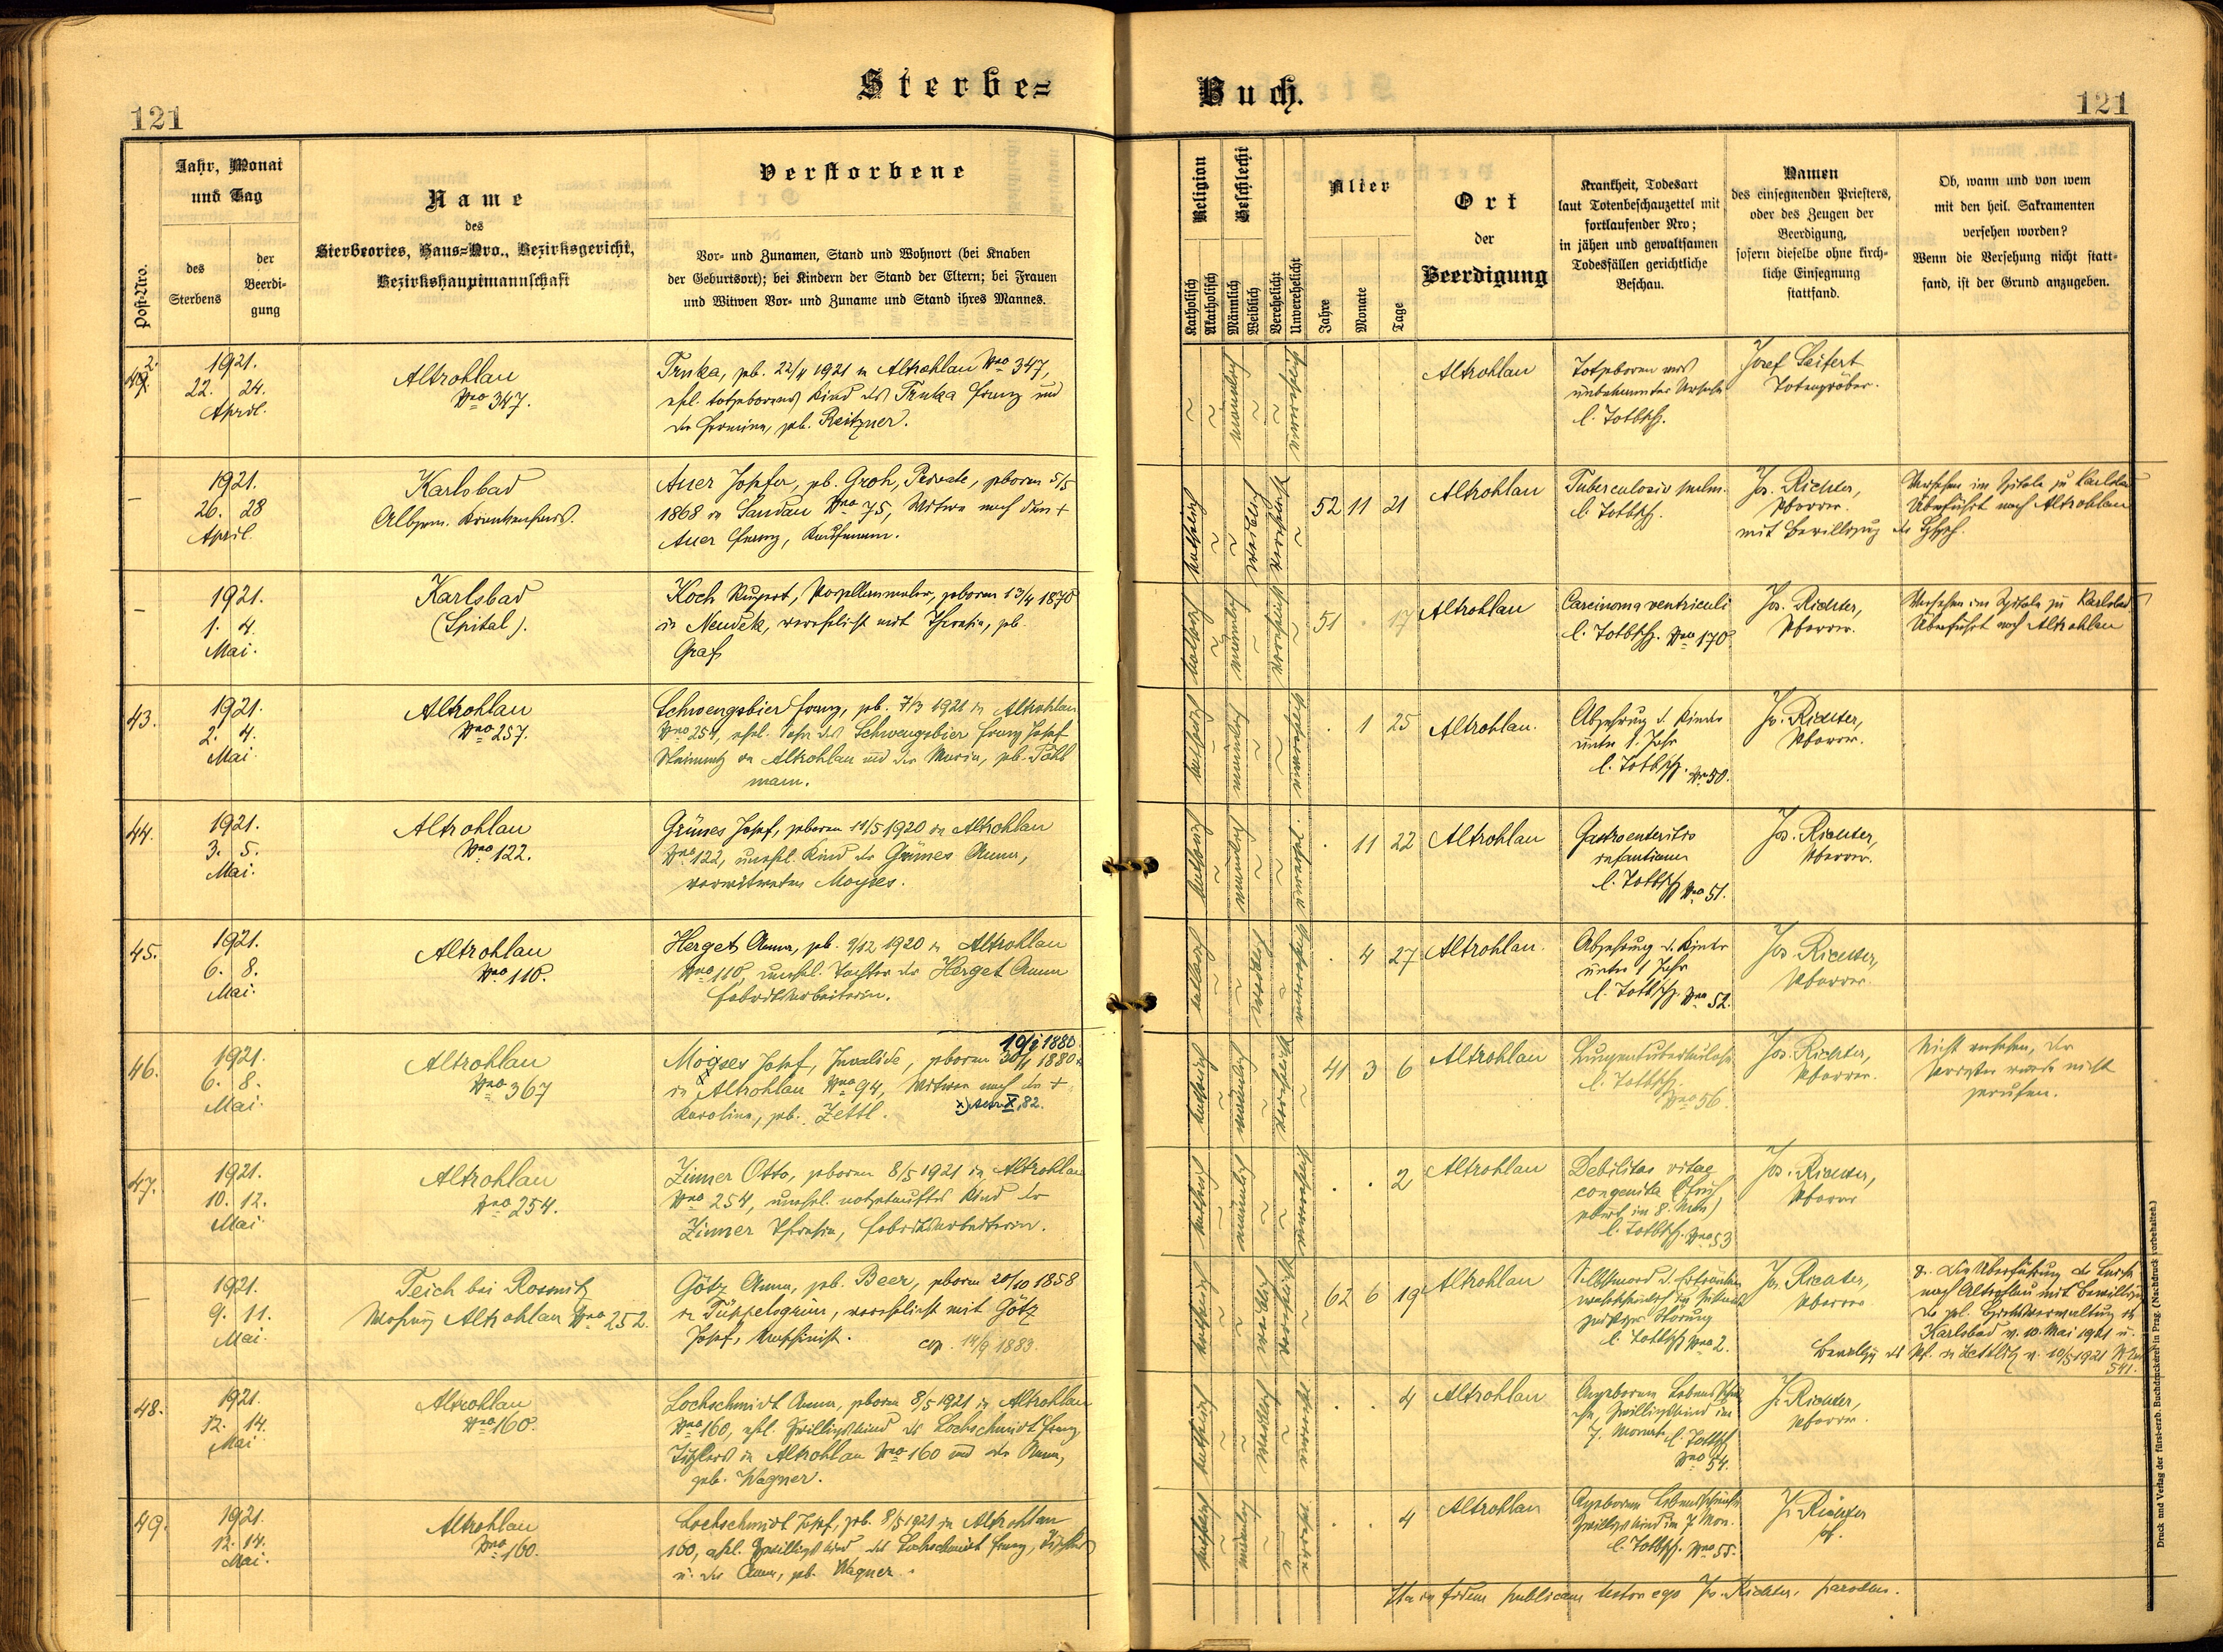 Sterbe=
Buch.
121
121
Post-Nro.
Jahr, Monat
und Tag
des
Sterbens
der
Beerdi-
gung
Name
des
Sterbeortes, Haus=Nro., Bezirksgericht,
Bezirkshauptmannschaft
Verstorbene
Vor- und Zunamen, Stand und Wohnort (bei Knaben
der Geburtsort); bei Kindern der Stand der Eltern; bei Frauen
und Witwen Vor- und Zuname und Stand ihres Mannes.
Religion
Katholisch
Akatholisch
Geschlecht
Männlich
Weiblich
Verehelicht
Unverehelicht
Alter
Jahre
Monate
Tage
Ort
der
Beerdigung
Krankheit, Todesart
laut Totenbeschauzettel mit
fortlaufender Nro;
in jähen und gewaltsamen
Todesfällen gerichtliche
Beschau.
Namen
des einsegnenden Priesters,
oder des Zeugen der
Beerdigung,
sofern dieselbe ohne kirch-
liche Einsegnung
stattfand.
Ob, wann und von wem
mit den heil. Sakramenten
versehen worden?
Wenn die Versehung nicht statt-
fand, ist der Grund anzugeben.
1921.
22. 24.
April.
Altrohlau
Nro 347.
Trnka, geb. 22/4 1921 in Altrohlau Nro 347,
ehel. totgeborenes Kind des Trnka Franz und
der Hermine, geb. Reitzner.
Altrohlau
Totgeboren aus
unbekannter Ursache
l. Totbsch.
Josef Seifert
Totengräber.
1921.
26. 28
April
Karlsbad
Allgem. Krankenhaus.
Auer Josefa, geb. Groh, Private, geboren 5/5
1868 in Sandau Nro 75, Witwe nach dem +
Auer Franz, Kaufmann.
katholisch
weiblich
verehelicht
52 11 21
Altrohlau
Tuberculosis pulm.
l. Totbsch.
Jos. Richter,
Pfarrer.
mit Bewilligung der
Versehen im Spitale zu Karlsbad
Überführt nach Altrohlau
1921.
1. 4.
Mai.
Karlsbad
(Spital).
Koch Rupert, Porzellanmaler, geboren 13/4 1870
in Neudek, verehelicht mit Theresia, geb.
Graf
katholisch
männlich
verehelicht
51 . 17
Altrohlau
Carcinoma ventriculi
l. Totbsch. Nro 170.
Jos. Richter,
Pfarrer.
Versehen im Spitale zu Karlsbad
Überführt nach Altrohlau
43.
1921.
2. 4.
Mai
Altrohlau
Nro 257.
Schwengsbier Franz, geb. 7/3 1921 in Altrohlau
Nro 257, ehel. Sohn des Schwengsbier Franz Josef
in Altrohlau und der Maria, geb. Pöhl
mann.
katholisch
männlich
unverehelicht
. 1 25
Altrohlau.
Abzehrung d. Kinder
unter 1. Jahr
l. Totbsch. Nro 50.
Jos. Richter,
Pfarrer.
44.
1921.
3. 5.
Mai.
Altrohlau
Nro 122.
Grünes Josef, geboren 11/5 1920 in Altrohlau
Nro 122, unehel. Kind der Grünes Anna,
verwitweten Moyses.
katholisch
männlich
. 11 22
Altrohlau
Gastroenteritis
infantium
l. Totbsch Nro 51.
Jos. Richter,
Pfarrer.
45.
1921.
6. 8.
Mai.
Altrohlau
Nro 110.
Herget Anna, geb. 9/12 1920 in Altrohlau
Nro 110, unehel. Tochter der Herget Anna
Fabriksarbeiterin.
katholisch
weiblich
unverehelicht
. 4 27
Altrohlau.
Abzehrung d. Kinder
unter 1 Jahr
l. Totbsch. Nro 52.
Jos. Richter,
Pfarrer.
46.
1921.
6. 8.
Mai.
Altrohlau
Nro 367
1880
Moÿses Josef, Invalide, geboren 30/1 1880
in Altrohlau Nro 94, Witwer nach der +
Karolina, geb. Zettl.
X, 82.
katholisch
männlich
verehelicht
41 3 6
Altrohlau
Lungentuberkulose
l. Totbsch.
Nro 56.
Jos. Richter,
Pfarrer.
Nicht versehen, der
Priester wurde nicht
gerufen.
47.
1921.
10. 12.
Mai.
Altrohlau
Nro 254.
Zinner Otto, geboren 8/5 1921 in Altrohlau
Nro 254, unehel. notgetauftes Kind der
Zinner Theresia, Fabriksarbeiterin.
katholisch
männlich
unverehelicht
. . 2
Altrohlau
Debilitas vitae
congenita (Früh
geburt in 8. Mon)
l. Totbsch. Nro 53
Jos. Richter,
Pfarrer
1921.
9. 11.
Mai.
Teich bei Rosnitz
Wohnung Altrohlau Nro 252.
Götz Anna, geb. Beer, geboren 20/10 1858
in Tüppelsgrün, verehelicht mit Götz
Josef, Maschinist.
cop. 14/9 1883.
katholisch
weiblich
verehelicht
62 6 19
Altrohlau
Selbstmord d. Ertränken
wahrscheinlich in
geistiger Störung
l. Totbsch Nro 2.
Jos. Richter,
Pfarrer
Die Überführung der Leiche
nach Altrohlau mit Bewilligung
der pol. Bezirksverwaltung in
Karlsbad v. 10. Mai 1921 u.
Bewilligg des Pf. in Zettlitz v. 10/5 1921
541.
48.
1921.
12. 14.
Mai.
Altrohlau
Nro 160.
Lochschmidt Anna, geboren 8/5 1921 in Altrohlau
Nro 160, ehel. Zwillingskind des Lochschmidt Franz,
Tischlers in Altrohlau Nro 160 und der Anna,
geb. Wagner.
katholisch
weiblich
. . 4
Altrohlau
Angeborene Lebensschwä
che, Zwillingskind im
7. Monat l. Totbsch
Nro 54.
J. Richter,
Pfarrer.
49.
1921.
12. 14.
Mai.
Altrohlau
Nro 160.
Lochschmidt Josef, geb. 8/5 1921 in Altrohlau
160, ehel. Zwillingskind des Lochschmidt Franz, Tischlers
u. der Anna, geb. Wagner.
katholisch
männlich
. . 4
Altrohlau
Angeborene Lebensschwäche
Zwillingskind im 7 Mon.
l. Totbsch. Nro 55.
J. Richter
Pf.
Ita in fidem publicam testor ego Jos. Richter, parochus.
Druck und Verlag der fürst-erzb. Buchdruckerei in Prag. (Nachdruck vorbehalten.)